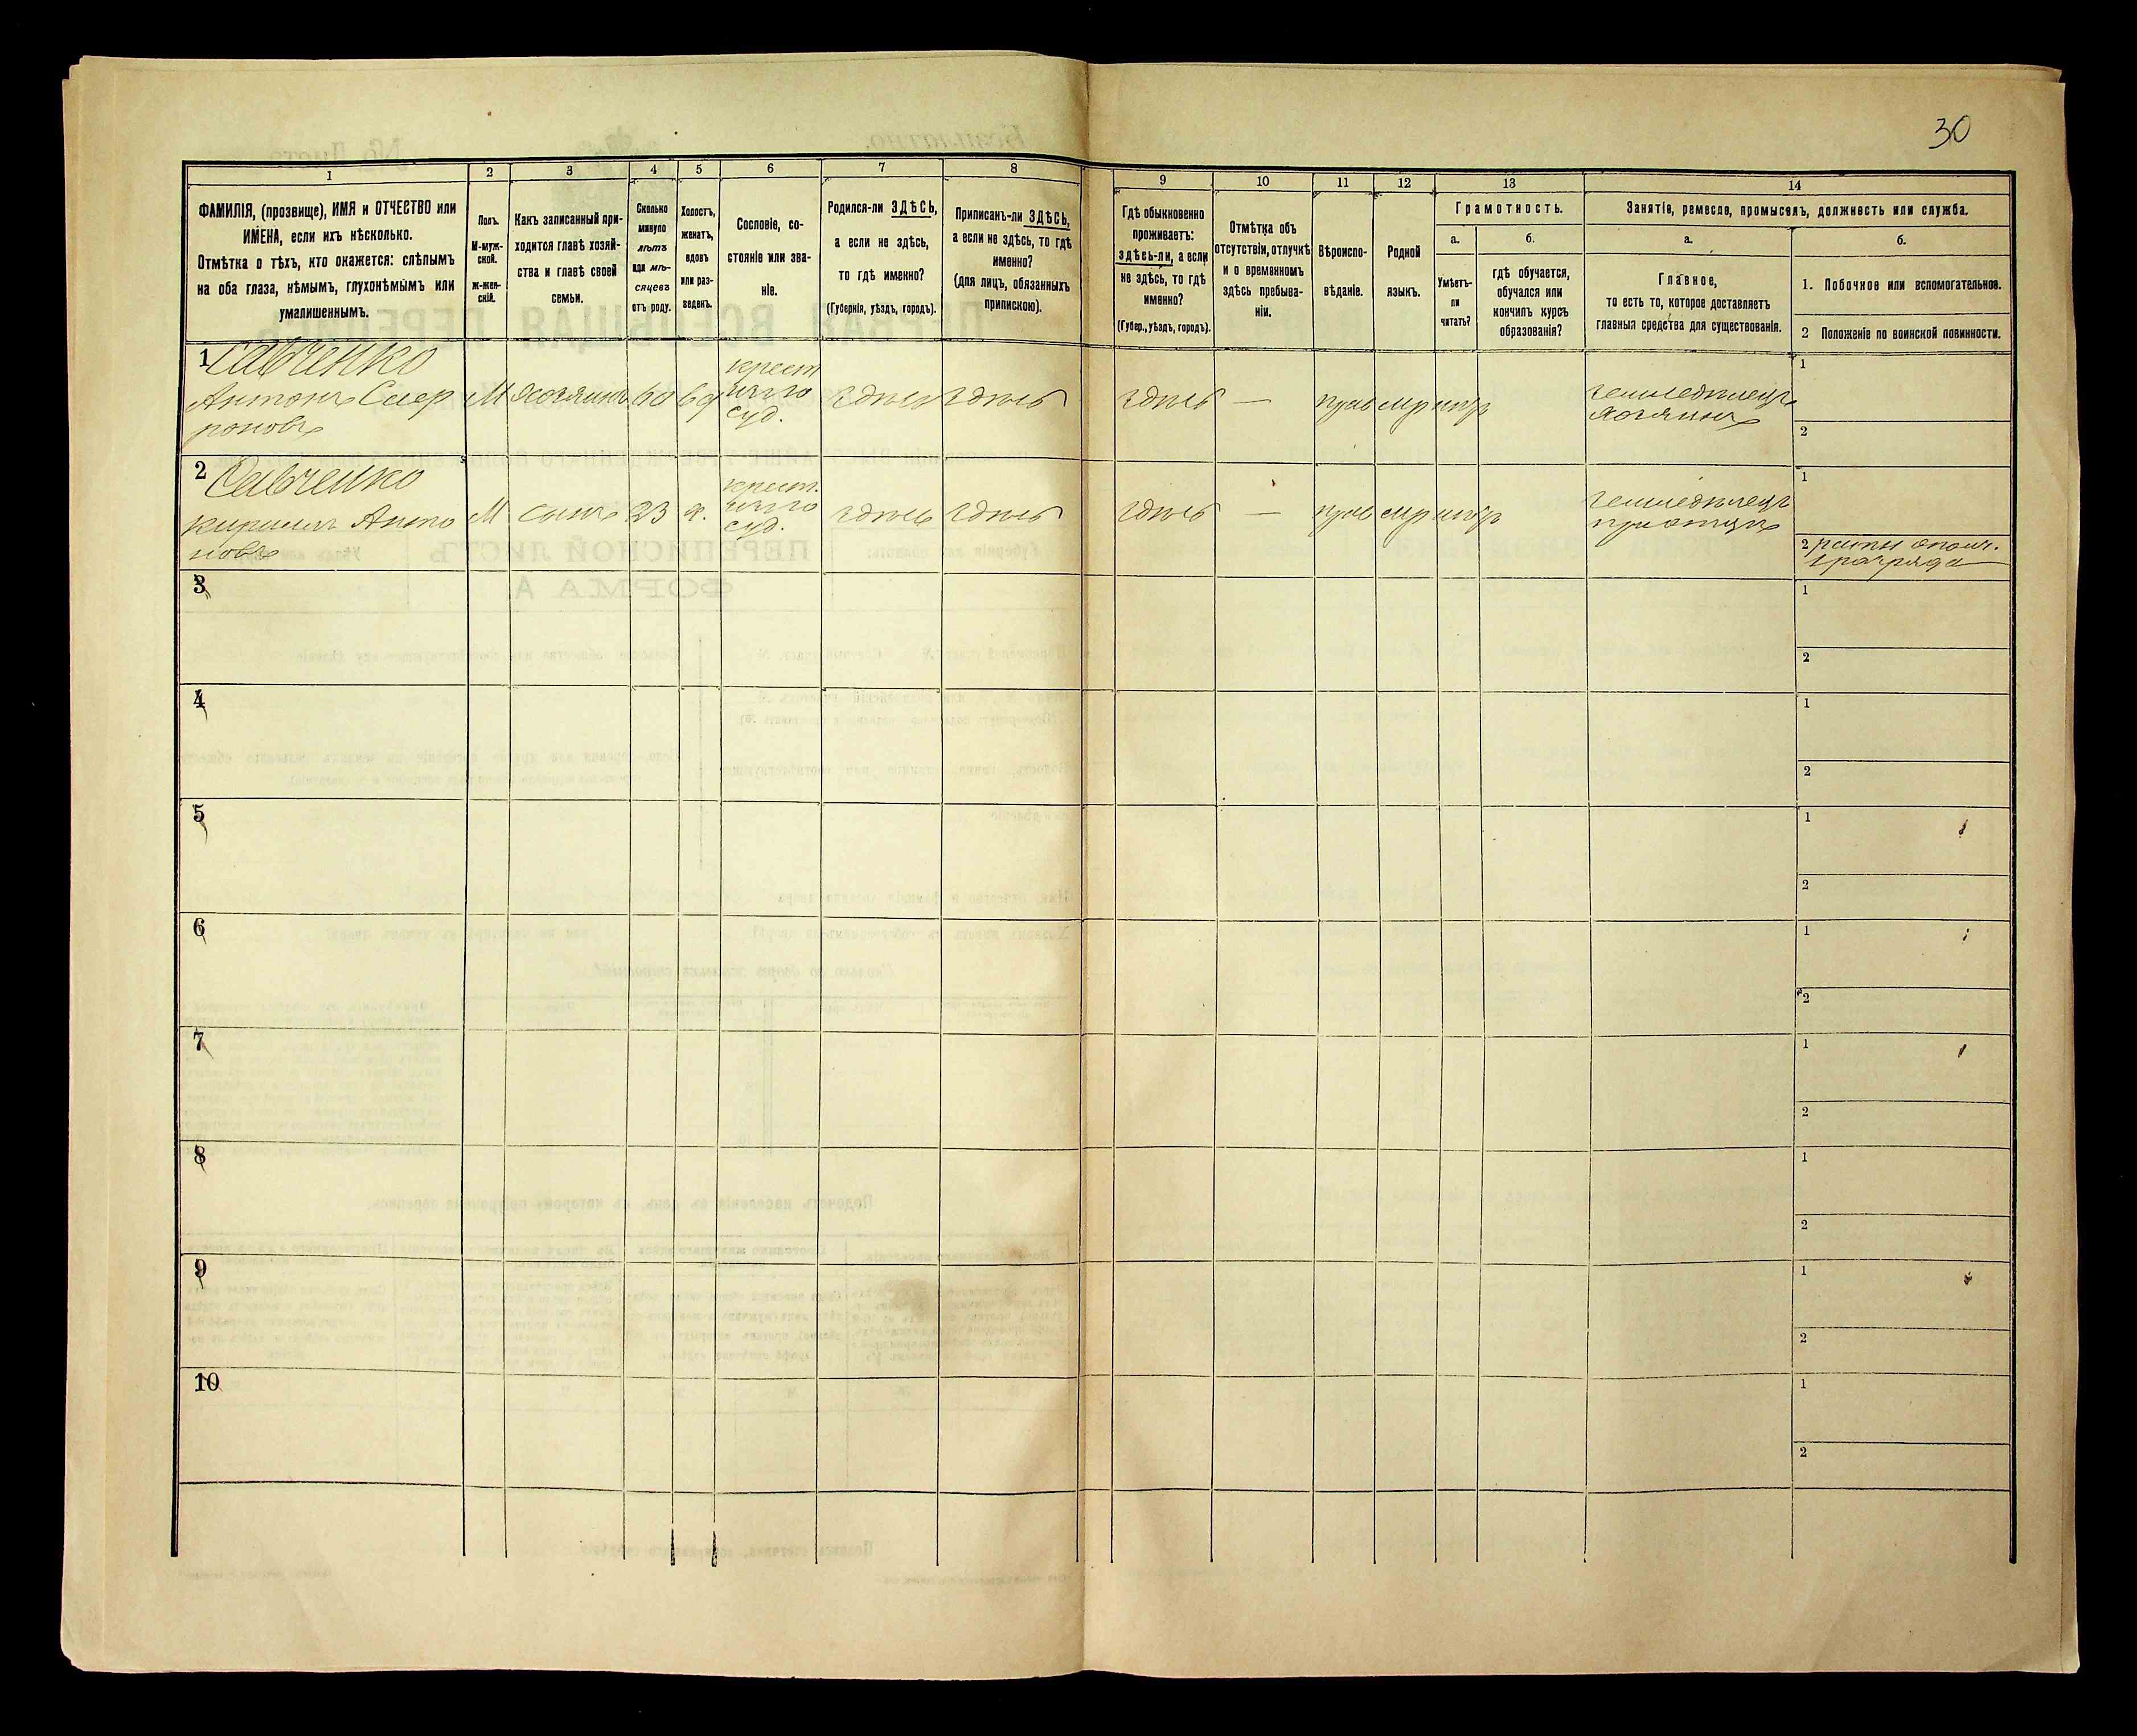 30
1
2
3
4
5
6
7
8
9
10
11
12
13
14
ФАМИЛІЯ, (прозвище), ИМЯ и ОТЧЕСТВО или
ИМЕНА, если ихъ нѣсколько.
Отмѣтка о тѣхъ, кто окажется: слѣпымъ
на оба глаза, нѣмымъ, глухонѣмымъ или
умалишеннымъ.
Полъ.
М-муж-
ской.
Ж-жен-
скій.
Какъ записанный при-
ходится главѣ хозяй-
ства и главѣ своей
семьи.
Сколько
минуло
лѣтъ
или мѣ-
сяцевъ
отъ роду.
Холостъ,
женатъ,
вдовъ
или раз-
веденъ.
Сословіе, со-
стояніе или зва-
ніе.
Родился-ли ЗДѢСЬ,
а если не здѣсь,
то гдѣ именно?
(Губернія, уѣздъ, городъ).
Приписанъ-ли ЗДѢСЬ,
а если не здѣсь, то гдѣ
именно?
(для лицъ, обязанныхъ
припискою).
Гдѣ обыкновенно
проживаетъ:
здѣсь-ли, а если
не здѣсь, то гдѣ
именно?
(Губер., уѣздъ, городъ).
Отмѣтка объ
отсутствіи, отлучкѣ
и о временномъ
здѣсь пребыва-
ніи.
Вѣроиспо-
вѣданіе.
Родной
языкъ.
Грамотность.
а.
Умѣетъ-
ли
читать?
б.
гдѣ обучается,
обучался или
кончилъ курсъ
образованія?
Занятіе, ремесло, промыселъ, должность или служба.
а.
Главное,
то есть то, которое доставляетъ
главныя средства для существованія.
б.
1. Побочное или вспомогательное.
2 Положеніе по воинской повинности.
1 Савченко
Антонъ
М
хозяинъ
60
крест
суд.
здѣсь
здѣсь
здѣсь
—
прав
мр
нѣтъ
земледѣлецъ
хозяинъ
1
2
2 Савченко
Кириллъ Анто
новъ
М
сынъ
23
х.
крест.
суд.
здѣсь
здѣсь
здѣсь
—
прав
мр
нѣтъ
земледѣлецъ
1
2 ратн ополч.
1 разряда
3
1
2
4
1
2
5
1
2
6
1
2
7
1
2
8
1
2
9
1
2
10
1
2